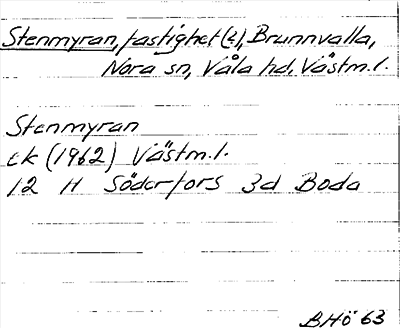 Stenmyran, fastighet (2), Brunnvalla,
Nora sn, Våla hd, Västm.l.
Stenmyran
ek (1962) Västm.l.
12 H Söderfors 3d Boda
BHö 63